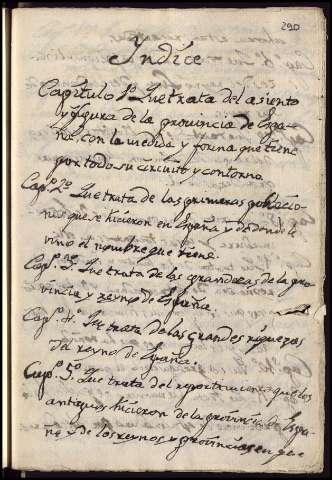 290
Indíce
Capítulo 1º. Que trata del asiento
y figura de la provincia de Espa-
ña: con la medida y forma que tiene
por todo su circuito y contorno.
Capº. 2º. Que trata de las primeras poblacio-
nes que se hicieron en España y de donde le
vino el nombre que tiene.
Capº. 3º. Que trata de las grandezas de la pro-
vincia y reyno de España.
Capº. 4º. Que trata de las grandes riquezas
del reyno de España.
Capº. 5º. Que trata del repartimiento que los
antiguos hicieron de la provincia de Espa-
ña y de los reynos y provincias en que